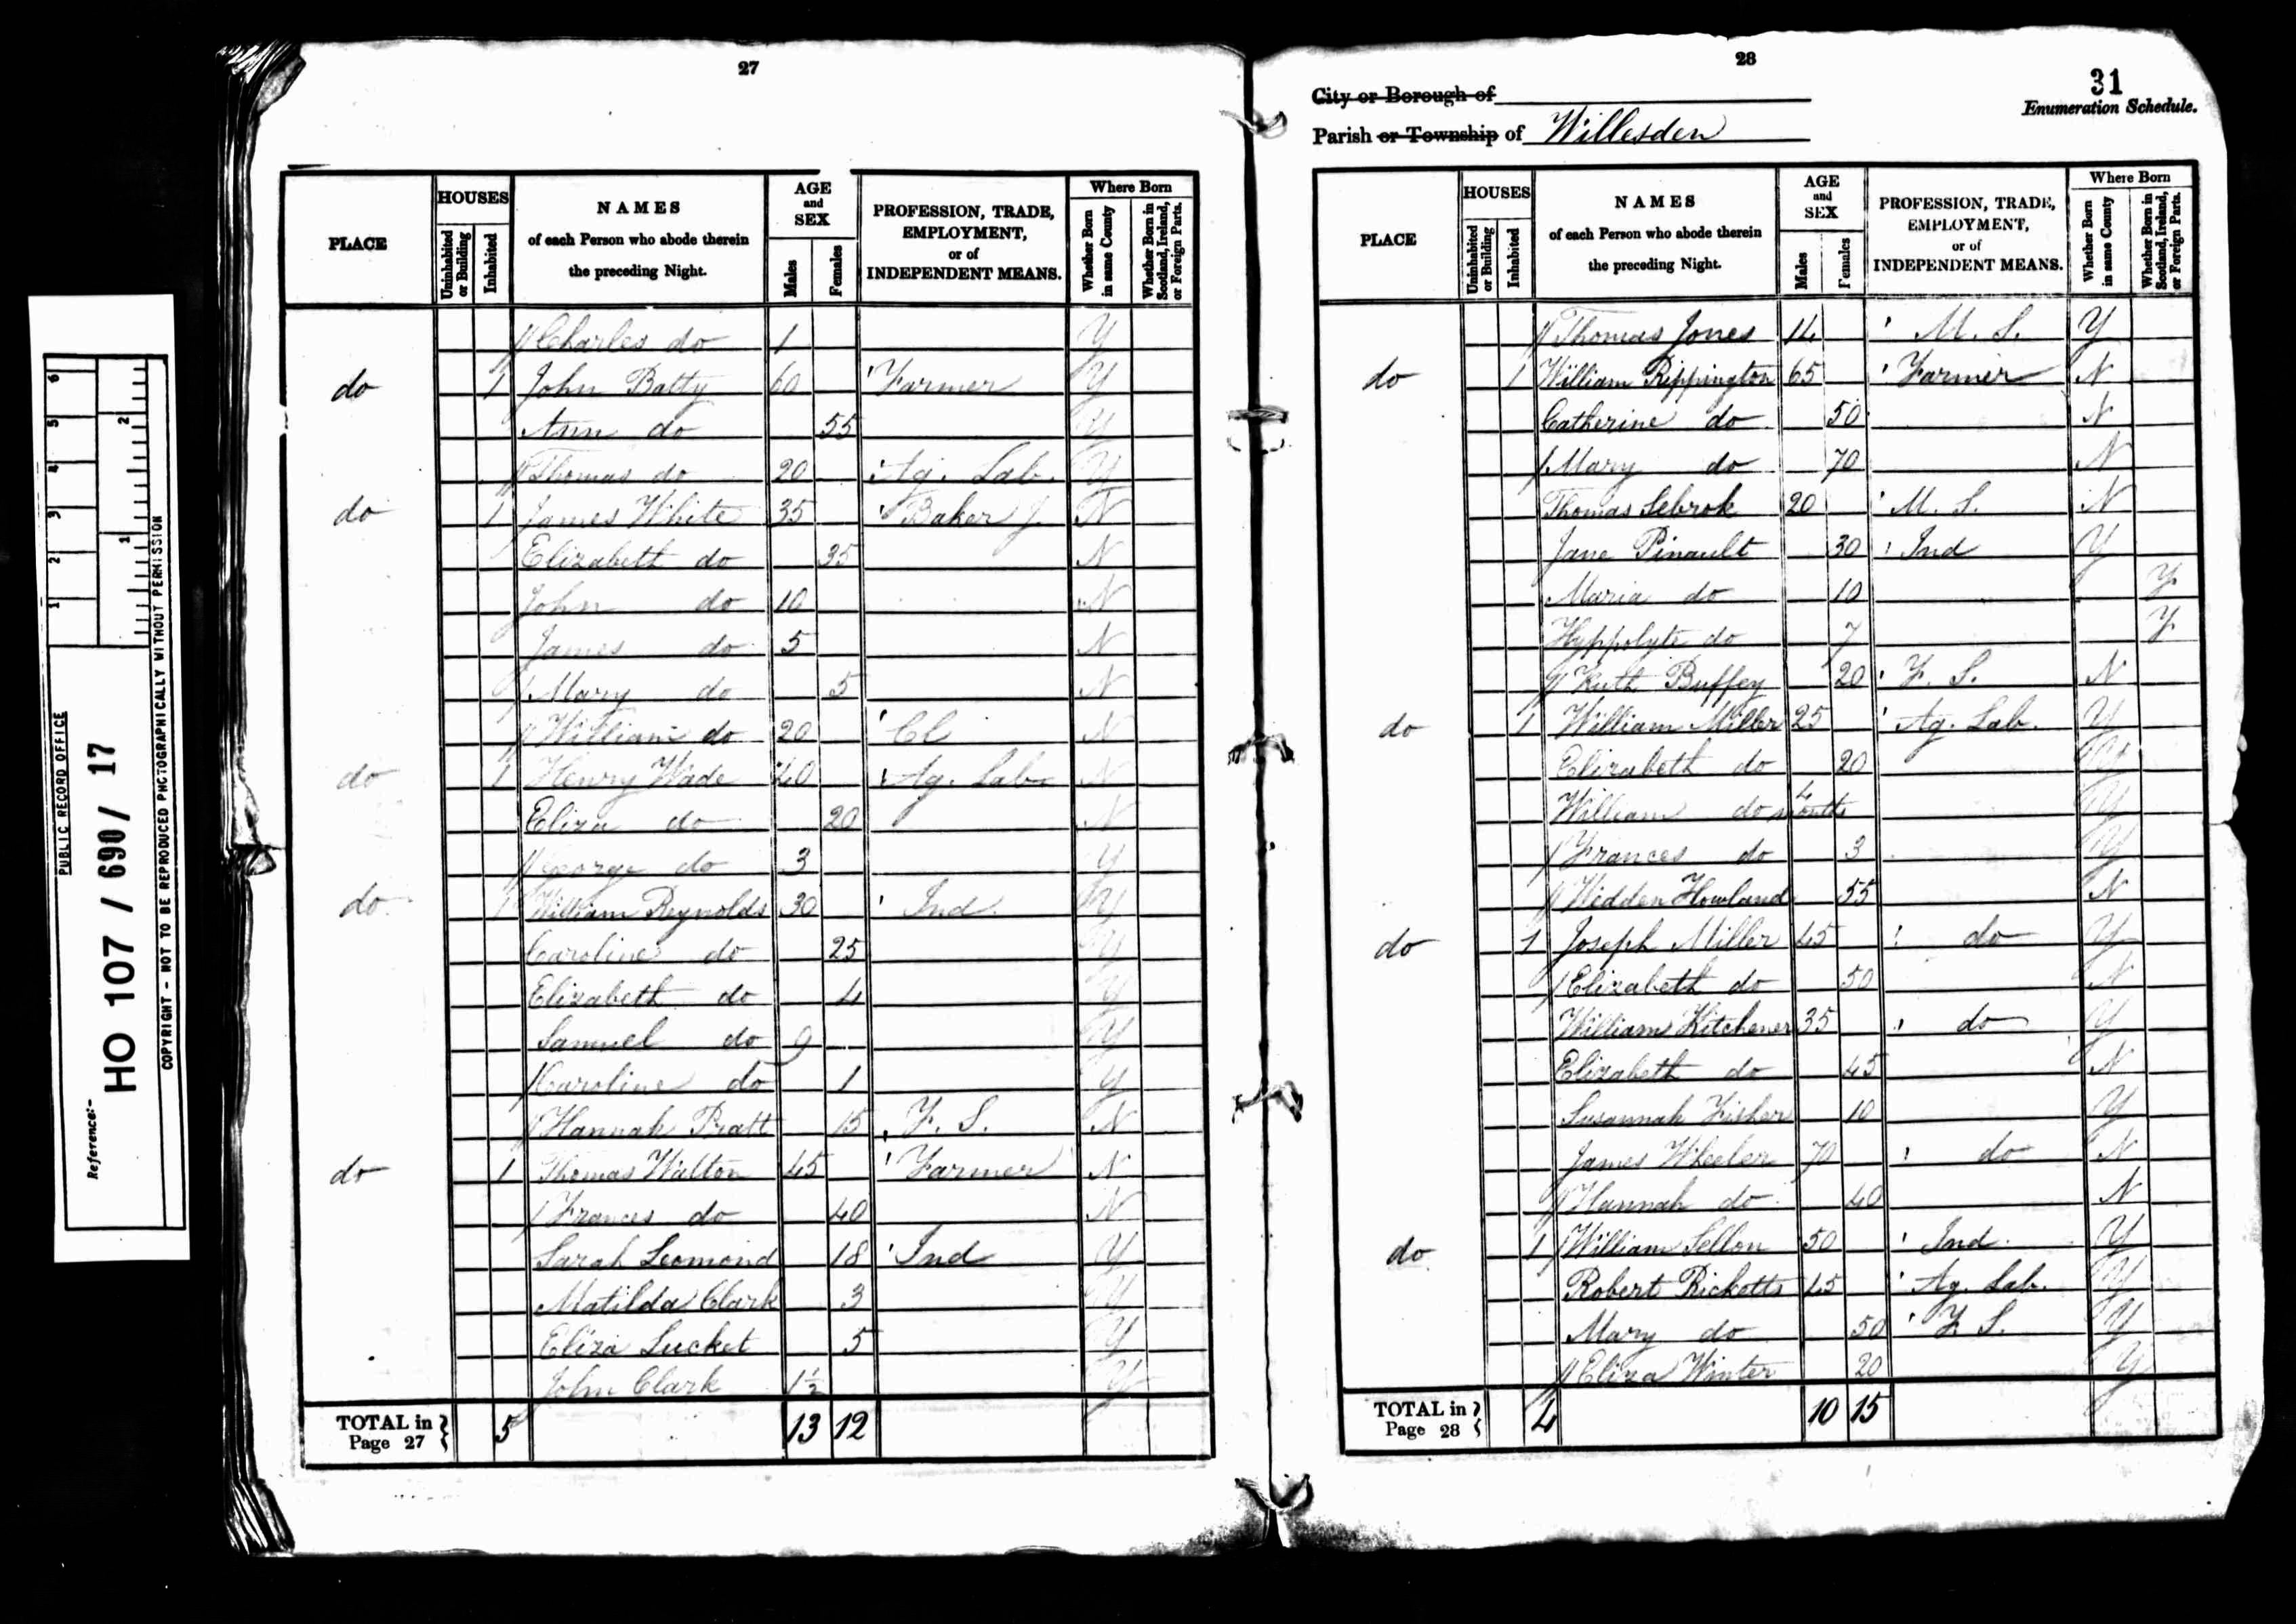 PUBLIC RECORD OFFICE
Reference:-
HO 107 / 690 / 17
COPYRIGHT - NOT TO BE REPRODUCED PHOTOGRAPHICALLY WITHOUT PERMISSION
1 2 3 4 5 6
1 2
27
PLACE
HOUSES
Uninhabited or Building
Inhabited
NAMES
of each Person who abode therein
the preceding Night.
AGE
and
SEX
Males
Females
PROFESSION, TRADE,
EMPLOYMENT,
or of
INDEPENDENT MEANS.
Where Born
Whether Born in same County
Whether Born in Scotland, Ireland, or Foreign Parts.
Charles do 1 Y
do 1 John Batty 60 Farmer Y
Ann do 55 Y
Thomas do 20 Ag. Lab. Y
do 1 James White 35 Baker J. N
Elizabeth do 35 N
John do 10 N
James do 5 N
Mary do 5 N
William do 20 Cl N
do 1 Henry Wade 40 Ag. Lab N
Eliza do 20 N
George do 3 Y
do 1 William Reynolds 30 Ind Y
Caroline do 25 Y
Elizabeth do 4 Y
Samuel do 9 Y
Caroline do 1 Y
Hannah Pratt 15 F. S. N
do 1 Thomas Walton 45 Farmer N
Frances do 40 N
Sarah Leomond 18 Ind Y
Matilda Clark 3 Y
Eliza Lucket 5 Y
John Clark 1½ Y
TOTAL in Page 27 } 5 13 12
28
31
Enumeration Schedule.
City or Borough of
Parish or Township of Willesden
PLACE
HOUSES
Uninhabited or Building
Inhabited
NAMES
of each Person who abode therein
the preceding Night.
AGE
and
SEX
Males
Females
PROFESSION, TRADE,
EMPLOYMENT,
or of
INDEPENDENT MEANS.
Where Born
Whether Born in same County
Whether Born in Scotland, Ireland, or Foreign Parts.
Thomas Jones 14 M. S. Y
do 1 William Rippington 65 Farmer N
Catherine do 50 N
Mary do 70 N
Thomas Sebrok 20 M. S. N
Jane Pinault 30 Ind Y
Maria do 10 Y
Hyppolyte do 7 Y
Ruth Buffey 20 F. S. N
do 1 William Miller 25 Ag. Lab. Y
Elizabeth do 20 Y
William do 4 months Y
Frances do 3 Y
Wedden Howland 55 N
do 1 Joseph Miller 45 do Y
Elizabeth do 50 N
William Kitchener 35 do Y
Elizabeth do 45 N
Susannah Fisher 10 Y
James Wheeler 70 do N
Hannah do 40 N
do 1 William Sellon 50 Ind. Y
Robert Ricketts 45 Ag. Lab. Y
Mary do 50 F. S. Y
Eliza Winter 20 Y
TOTAL in Page 28 } 4 10 15